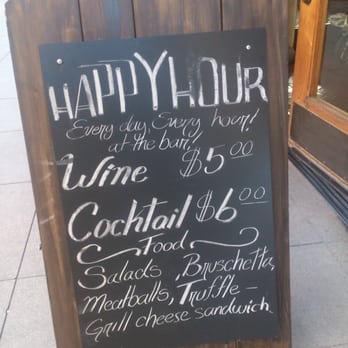 HAPPY HOUR
Every day, Every hour!
at the bar!
Wine $5.00
Cocktail $6.00
Food
Salads, Bruschetta,
Meatballs, Truffle -
Grill cheese sandwich.